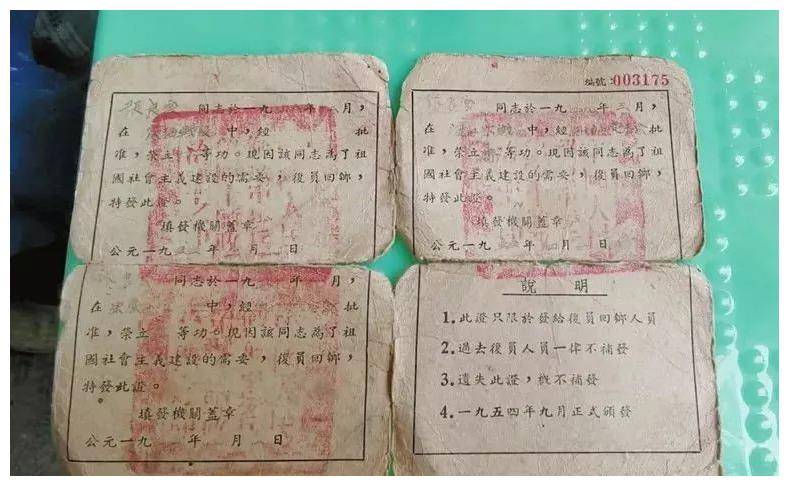 同志於一九 年 月，
在 中，經 批
准，榮立 等功。現因該同志為了祖
國社會主义建設的需要，復員回鄉，
特發此證。
填發機關蓋章
公元一九 年 月 日
編號：003175
同志於一九 年三月，
在 中，經 批
准，榮立 等功。現因該同志為了祖
國社會主义建設的需要，復員回鄉，
特發此證。
填發機關蓋章
公元一九 年 月 日
同志於一九 年 月，
在 中，經 批
准，榮立 等功。現因該同志為了祖
國社會主义建設的需要，復員回鄉，
特發此證。
填發機關蓋章
公元一九 年 月 日
說 明
1.此證只限於發給復員回鄉人員
2.過去復員人員一律不補發
3.遺失此證，概不補發
4.一九五四年九月正式頒發